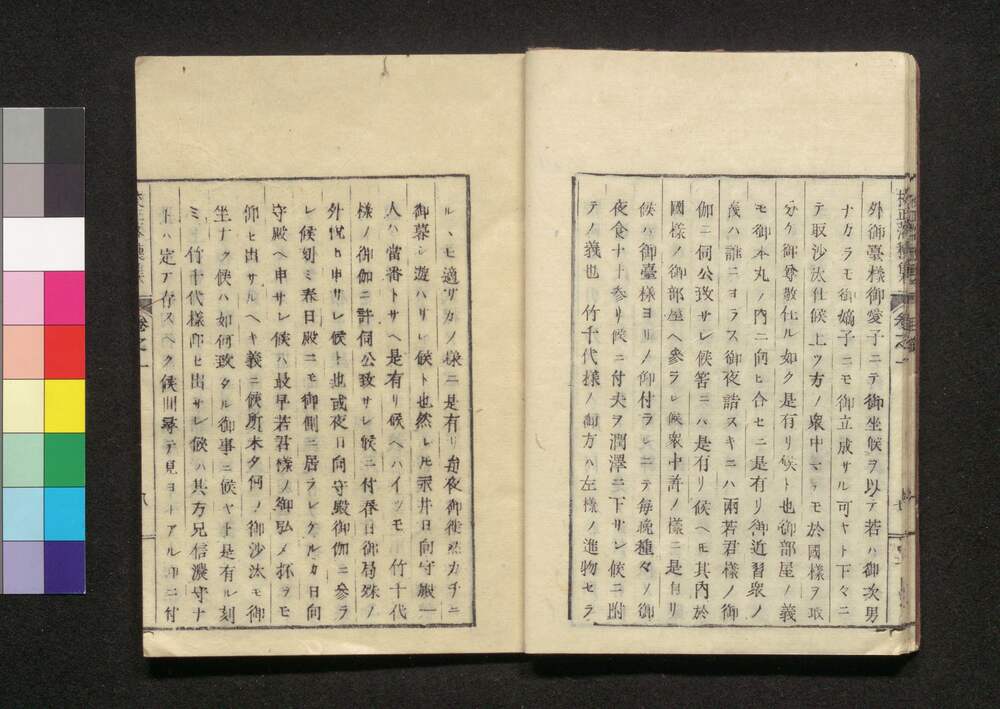 外御臺樣御愛子ニテ御坐候ヲ以テ若ハ御次男
ナカラモ御嫡子ニモ御立成サル可ヤト下々ニ
テ取沙汰仕候上ツ方ノ衆中ニテモ於國樣ヲ取
分ケ御尊敬仕ル如ク是有リ候ト也御部屋ノ義
モ御本丸ノ內ニ向ヒ合セニ是有リ御近習衆ノ
義ハ誰ニヨラス御夜詰スキニハ兩若君樣ノ御
伽ニ伺公致サレ候筈ニハ是有リ候ヘモ其內於
國樣ノ御部屋ヘ參ラレ候衆中許ノ樣ニ是有リ
候ハ御臺樣ヨリノ仰付ラレニテ每晚種々ノ御
夜食ナト參リ候ニ付夫ヲ潤澤ニ下サレ候ニ附
テノ義也 竹千代樣ノ御方ハ左樣ノ進物セラ
ルヽモ適サカノ樣ニ是有リ朝夜御徒然カチニ
御暮シ遊ハサレ候ト也然レモ永井日向守殿一
人ハ當番トサヘ是有リ候ヘハイツモ 竹千代
樣ノ御伽ニ許伺公致サレ候ニ付春日御局殊ノ
外悅ヒ申サレ候ト也或夜日向守殿御伽ニ參ラ
レ候刻ミ春日殿ニモ御側ニ居ラレケルカ日向
守殿ヘ申サレ候ハ最早若君樣ノ御弘メ抔ラモ
仰ヒ出サルヘキ義ニ候所未タ何ノ御沙汰モ御
坐ナク候ハ如何致タル御事ニ候ヤト是有ル刻
ミ 竹千代樣仰ヒ出サレ候ハ其方兄信濃守ナ
トハ定テ存スヘク候間尋テ見ヨトアル仰ニ付
卷之一